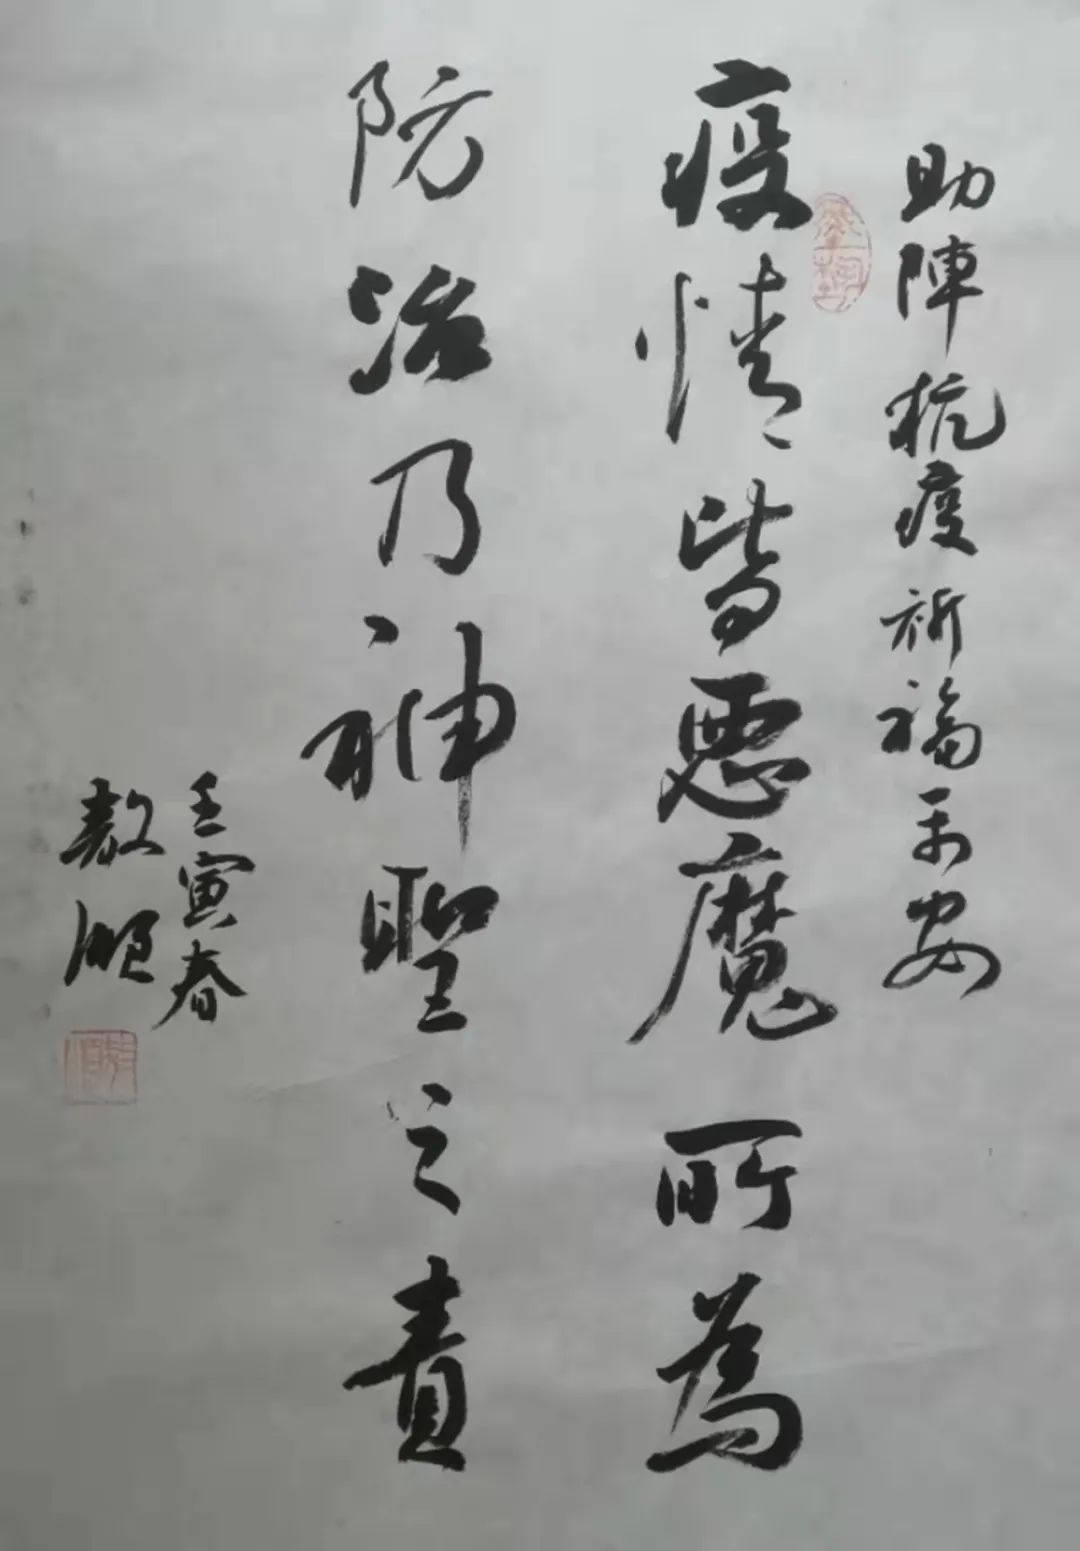 助陣抗疫祈福平安
疫情皆惡魔所為
防治乃神聖之責
壬寅春
敖順